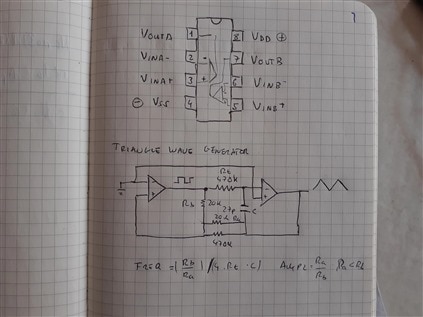 7
VoutA 1 8 VDD ⊕
VinA- 2 7 VoutB
VinA+ 3 6 VinB-
⊖ Vss 4 5 VinB+
TRIANGLE WAVE GENERATOR
470k
Rb 20k
C
20k Ra
470k
FREQ = (Rb/Ra) / (4 · Rt · C) AMPL = Ra/Rb Ra < Rb